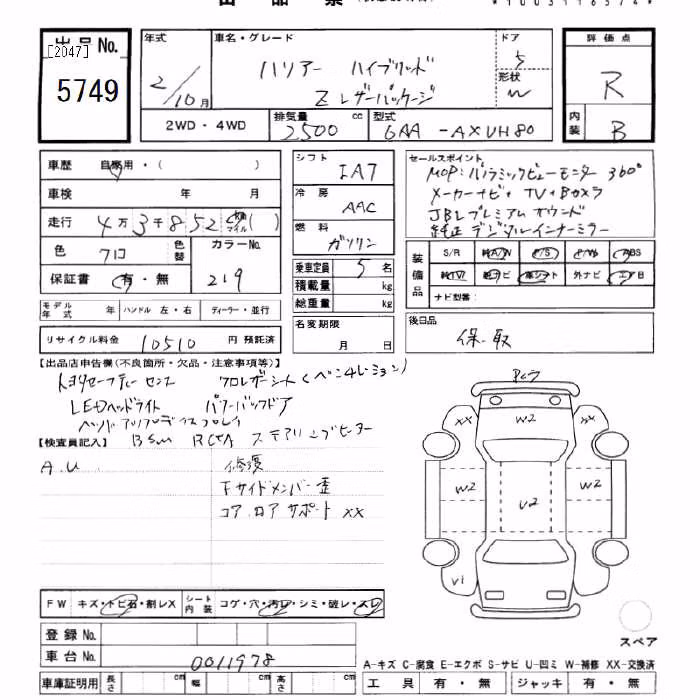 出品No.
[2047]
5749
年式
2/10月
車名・グレード
ハリアー ハイブリッド
Z レザーパッケージ
ドア
5
形状
W
評価点
R
内装
B
2WD・4WD
排気量 cc
2500
型式
6AA -AXUH80
車歴 自家用・( )
車検 年 月
走行 4万3千852 km マイル ( )
色 クロ 色替
カラーNo.
219
保証書 有・無
シフト
IA7
冷房
AAC
燃料
ガソリン
乗車定員 5名
積載量 kg
総重量 kg
セールスポイント
MOP:パノラミックビューモニター 360°
メーカーナビ+TV+Bカメラ
JBLプレミアム サウンド
純正デジタルインナーミラー
装備品
S/R 純A/W P/S P/W ABS
純TV 純ナビ 革シート 外ナビ エアB
ナビ型番:
モデル年式 年 ハンドル 左・右 ディーラー・並行
名変期限
月 日
後日品
保.取
リサイクル料金 10510 円 預託済
【出品店申告欄(不良箇所・欠品・注意事項等)】
トヨタセーフティーセンス クロレザーシート
LEDヘッドライト パワーバックドア
BSM RCTA ステアリングヒーター
【検査員記入】
A.U 修復
Fサイドメンバー歪
コア.ロア サポート XX
XX W2
W2 U2 W2
V1
FW キズ・トビ石・割レX シート内装 コゲ・穴・汚レ・シミ・破レ・スレ
登録No.
車台No. 0011978
車庫証明用 長さ cm 幅 cm 高さ cm
スペア
A-キズ C-腐食 E-エクボ S-サビ U-凹ミ W-補修 XX-交換済
工具 有・無 ジャッキ 有・無